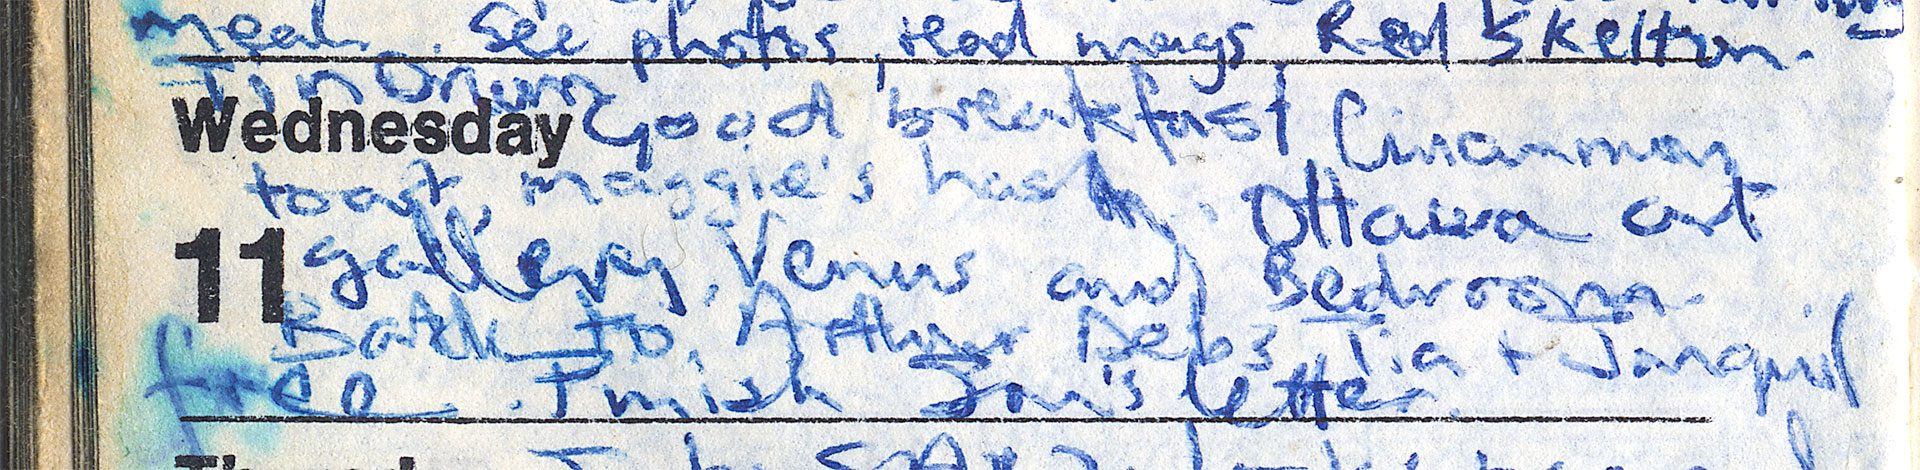 meal. See photos, read mags, Red Skelton.
Tin Drum
Wednesday Good breakfast, Cinnamon
toast, Maggie's hash. Ottawa art
11 gallery. Venus and Bedroom.
Back to Arthur Debs, Tia + Jonquil
free. Finish Jon's letter.